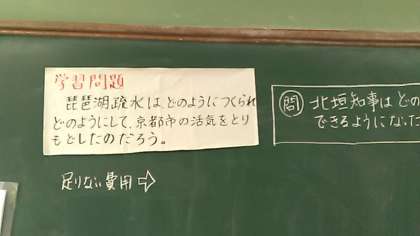 学習問題
琵琶湖疏水は、どのようにつくられ
どのようにして、京都市の活気をとり
もどしたのだろう。
問 北垣知事はどの
できるようになった
足りない費用⇨